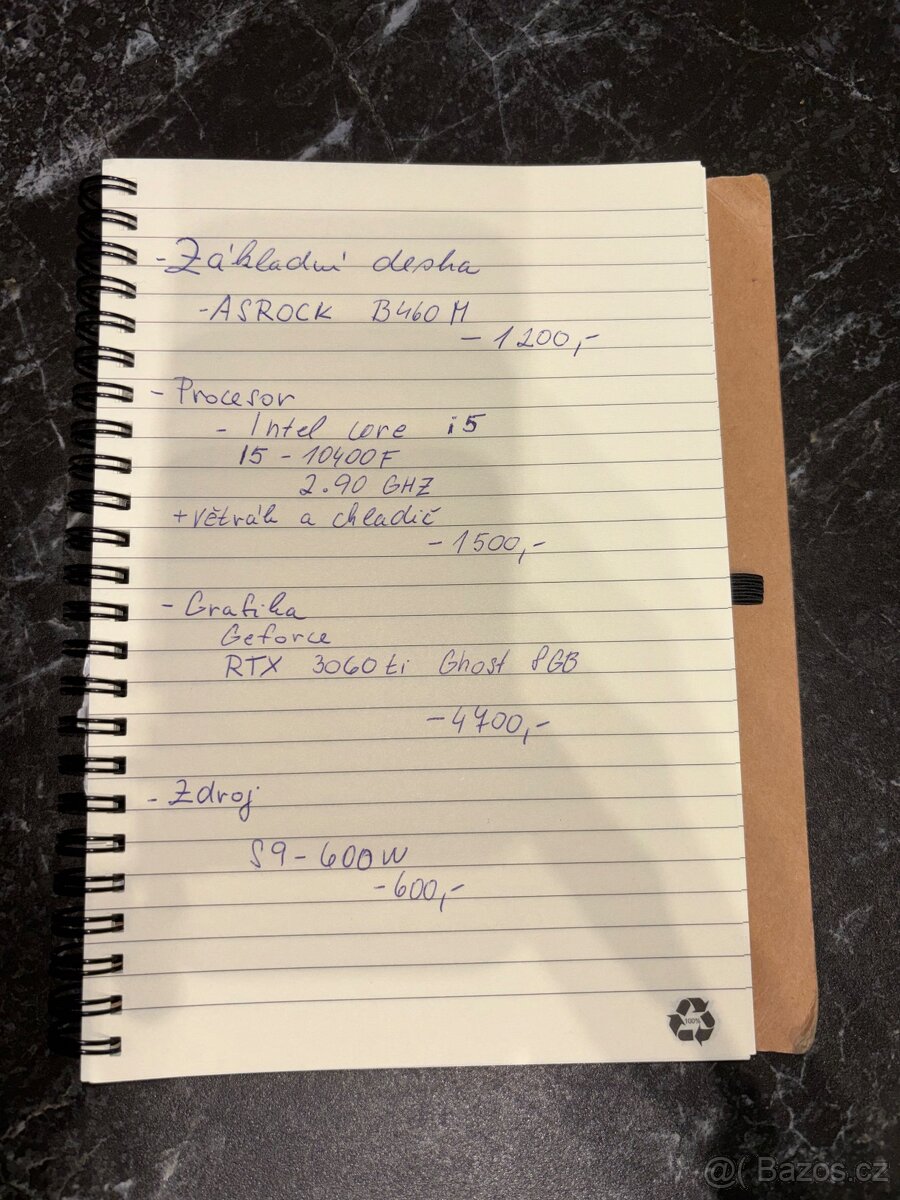 - Základní deska
- ASROCK B460M
- 1200,-
- Procesor
- Intel core i5
I5 - 10400F
2.90 GHZ
+ větrák a chladič
- 1500,-
- Grafika
Geforce
RTX 3060ti Ghost 8GB
- 4700,-
- Zdroj
S9 - 600W
- 600,-
100%
@( Bazos.cz